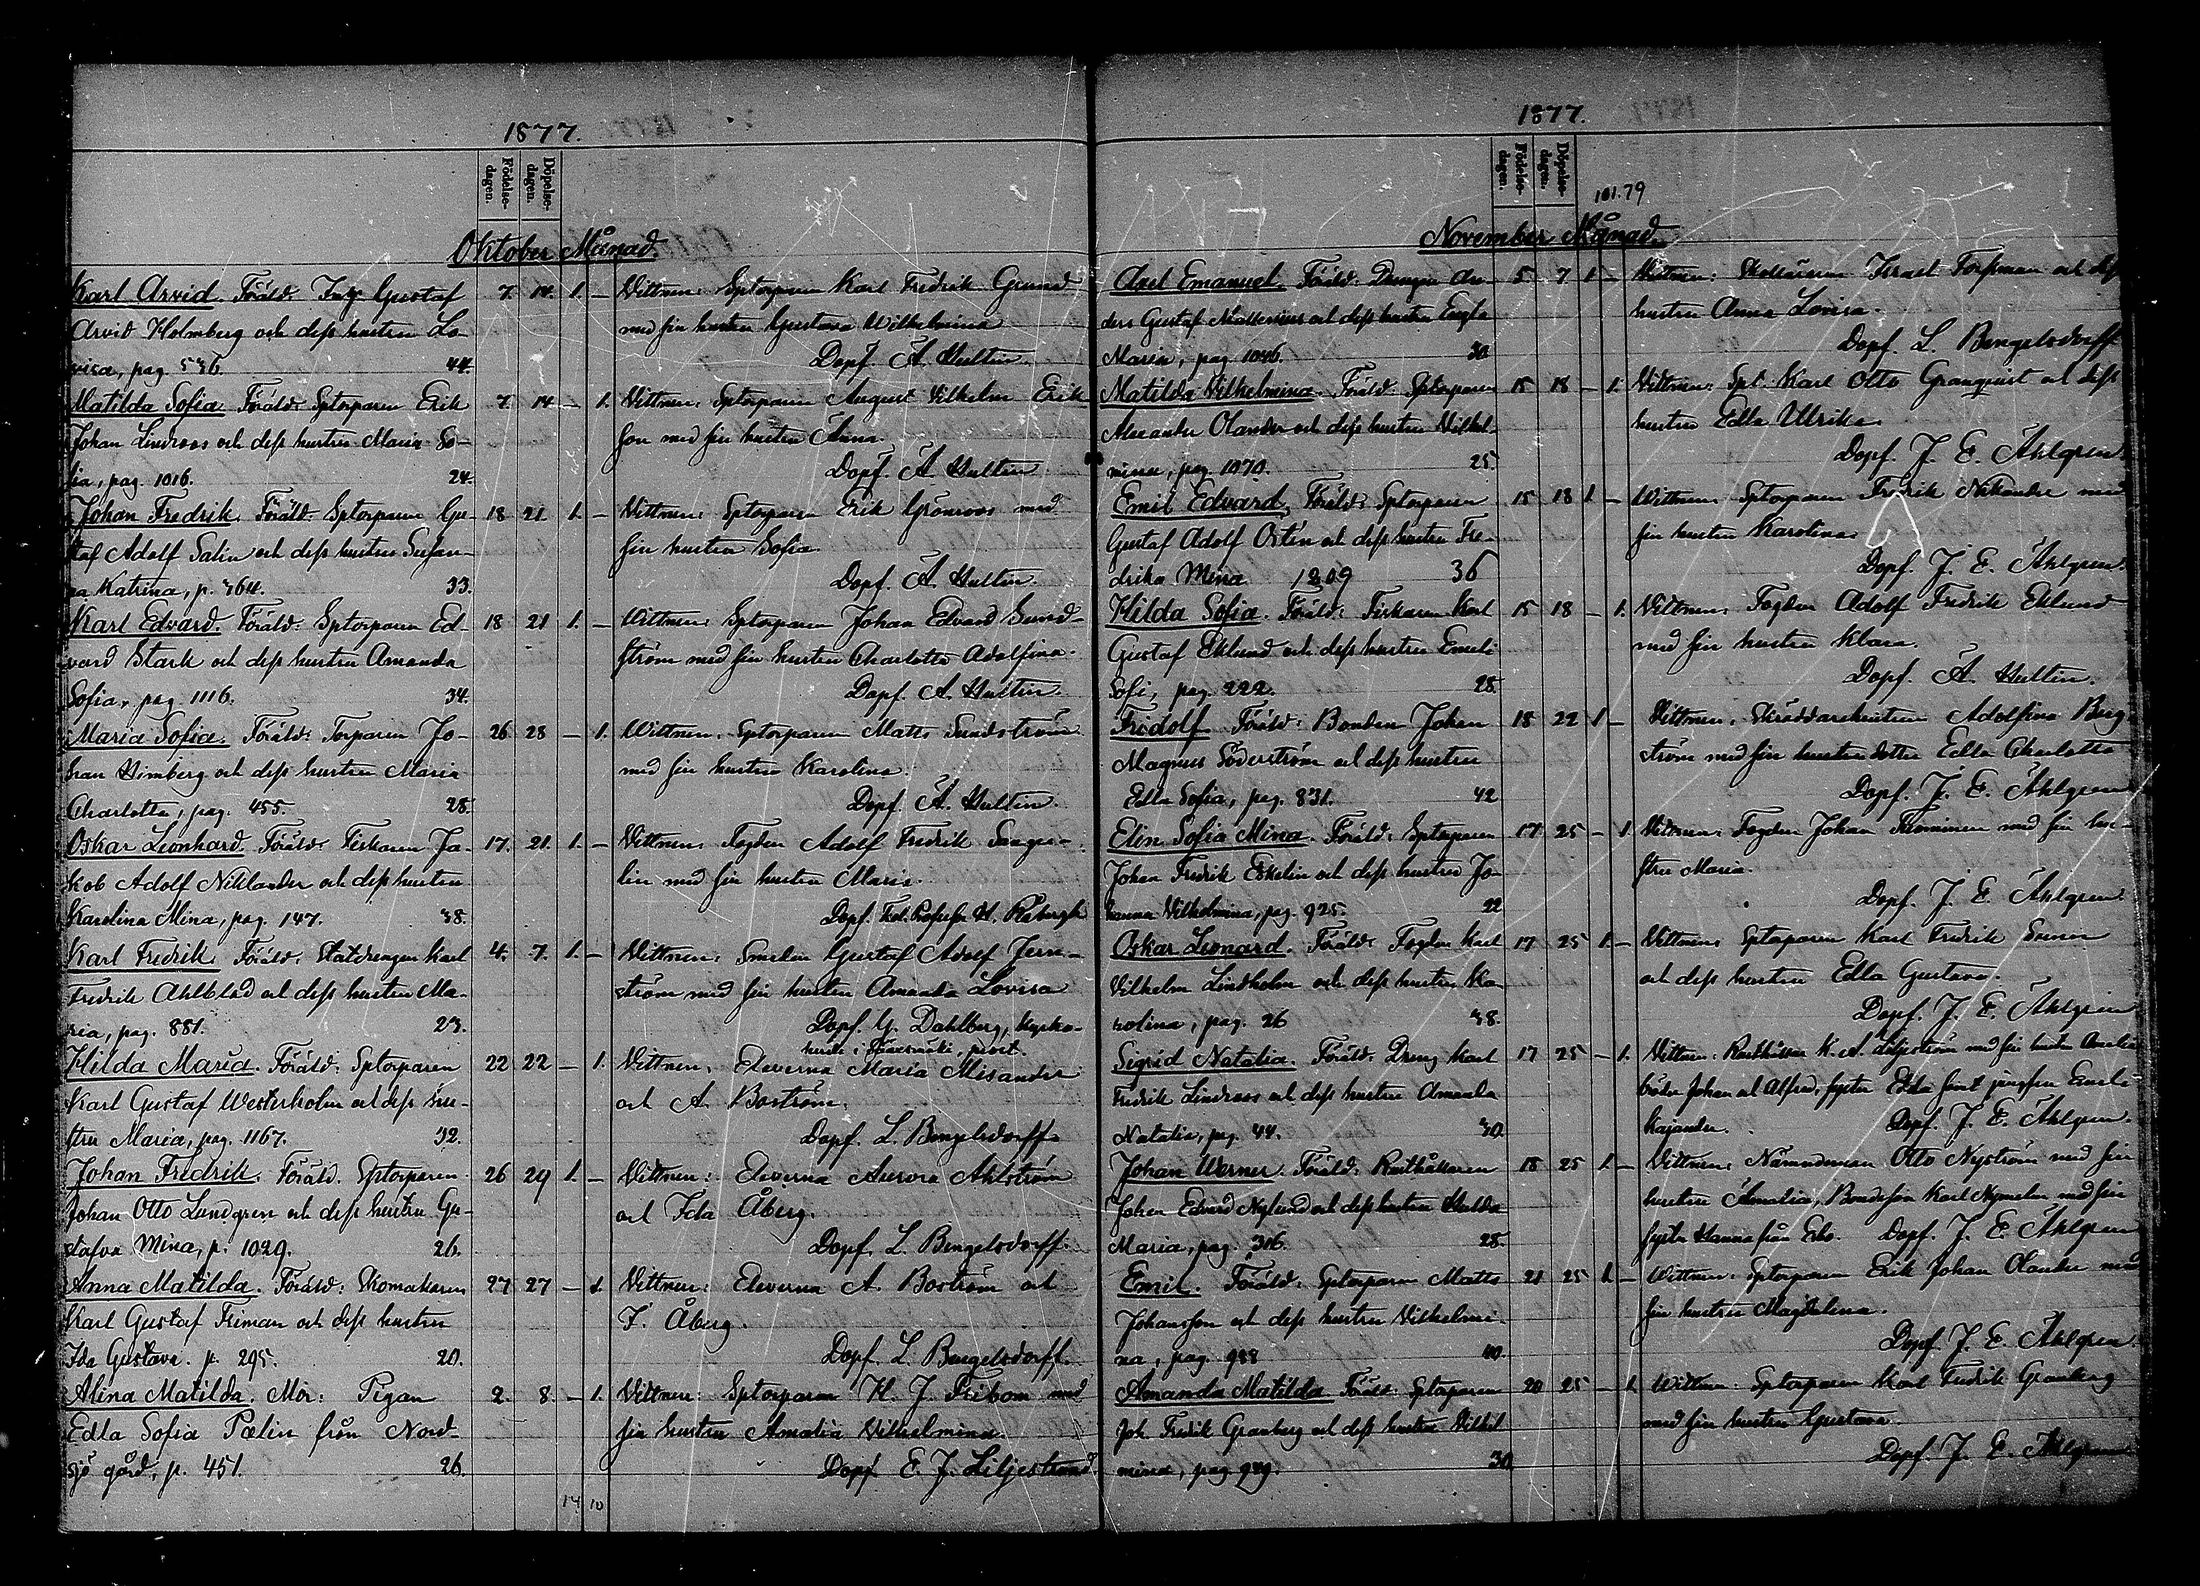 1877.
Födelse-dagen.
Döpelse-dagen.
Oktober Månad.
Karl Arvid. Föräld. Ing. Gustaf 7. 14. 1. — Vittnen: Sptorparen Karl Fredrik Grund
Arvid Holmberg och dess hustru Lo- med sin hustru Gustava Wilhelmina
visa, pag. 536. 44. Döpf. A. Hultin
Matilda Sofia. Föräld: Sptorparen Erik 7. 14 — 1. Vittnen: Sptorparen August Vilhelm Erik-
Johan Lindroos och dess hustru Maria So- son med sin hustru Anna.
fia, pag. 1016. 24. Döpf. A. Hultin
Johan Fredrik. Föräld: Sptorparen Gu- 18 21 1. — Vittnen: Sptorparen Erik Grönroos med
staf Adolf Salin och dess hustru Susan- sin hustru Sofia.
na Katrina, p. 364. 33. Döpf. A. Hultin.
Karl Edvard. Föräld: Sptorparen Ed- 18 21 1. — Vittnen: Sptorparen Johan Edvard Sund-
vard Stark och dess hustru Amanda ström med sin hustru Charlotta Adolfina.
Sofia, pag. 1116. 34. Döpf. A. Hultin.
Maria Sofia. Föräld: Torparen Jo- 26 28 — 1. Wittnen: Sptorparen Matts Sundström
han Himberg och dess hustru Maria med sin hustru Karolina.
Charlotta, pag. 455. 28. Döpf. A. Hultin.
Oskar Leonhard. Föräld: Fiskaren Ja- 17. 21. 1. — Vittnen: Fogden Adolf Fredrik
kob Adolf Niklander och dess hustru lin med sin hustru Maria.
Karolina Mina, pag. 147. 38. Döpf. Professor H. Råbergh
Karl Fredrik. Föräld: Statdrengen Karl 4. 7. 1. — Vittnen: Smeden Gustaf Adolf Jern-
Fredrik Ahlblad och dess hustru Ma- ström med sin hustru Amanda Lovisa
ria, pag. 881. 23. Döpf. G. Dahlberg, kyrko-
herde i
Hilda Maria. Föräld: Sptorparen 22 22 — 1. Vittnen: Eleverna Maria Misander
Karl Gustaf Westerholm och dess hu- och A. Boström.
stru Maria, pag. 1167. 32. Döpf. L. Bengelsdorff
Johan Fredrik. Föräld. Sptorparen 26 29 1. — Vittnen: Eleverna Aurora Ahlström
Johan Otto Lundgren och dess hustru Gu- och Ida Åberg.
stafva Mina, p. 1029. 26. Döpf. L. Bengelsdorff.
Anna Matilda. Föräld: Skomakaren 27 27 — 1. Vittnen: Eleverna A. Boström och
Karl Gustaf Friman och dess hustru F. Åberg.
Ida Gustava. p. 295. 20. Döpf. L. Bengelsdorff.
Alina Matilda. Mor: Pigan 2. 8. — 1. Vittnen: Sptorparen K. J. Fribom med
Edla Sofia Pælin från Nord- sin hustru Amalia Vilhelmina.
sjö gård, p. 451. 26. Döpf E. J. Liljestrand
14 10
1877.
Födelse-dagen.
Döpelse-dagen.
101.79
November Månad.
Axel Emanuel. Föräld: Drengen An- 5 7 1 — Vittnen: Israel Forsman och dess
ders Gustaf och dess hustru Engla hustru Anna Lovisa.
Maria, pag. 1046. 30 Döpf. L. Bengelsdorff
Matilda Vilhelmina. Föräld: Sptorparen 15 18 — 1. Vittnen: Spt. Karl Otto Granquist och dess
Alexander Olander och dess hustru Vilhel- hustru Edla Ullrika.
mina, pag. 1070. 25. Döpf. J. E. Åhlgren.
Emil Edvard. Föräld: Sptorparen 15 18 1. — Wittnen: Sptorparen Fredrik Nikander med
Gustaf Adolf Östén och dess hustru Fre- sin hustru Karolina.
drika Mina 1209 36 Döpf. J. E. Åhlgren.
Hilda Sofia. Föräld: Fiskaren Karl 15 18 — 1. Vittnen: Fogden Adolf Fredrik Eklund
Gustaf Eklund och dess hustru Emeli med sin hustru Klara.
Sofi, pag. 222. 28. Döpf. A. Hultin.
Fridolf Föräld: Bonden Johan 18 22 1 — Vittnen: Skräddarehustrun Adolfina Berg-
Magnus Söderström och dess hustru ström med sin dotter Edla Charlotta
Edla Sofia, pag. 831. 42 Döpf. J. E. Åhlgren
Elin Sofia Mina. Föräld: Sptorparen 17 25 — 1 Vittnen: Fogden Johan med sin hu-
Johan Fredrik Eskelin och dess hustru Jo- stru Maria.
hanna Vilhelmina, pag. 925. 22 Döpf. J. E. Åhlgren
Oskar Leonard. Föräld: Fogden Karl 17 25 1. — Vittnen: Sptorparen Karl Fredrik
Vilhelm Lindholm och dess hustru Ka- och dess hustru Edla Gustava.
rolina, pag. 26 38. Döpf. J. E. Åhlgren
Sigrid Natalia. Föräld: Dreng Karl 17 25 — 1. Vittnen: Rusthållare K. A. Liljeström med sin hustru Amalia
Fredrik Lindroos och dess hustru Amanda bröder Johan och Alfred, syster Edla samt jungfru Emeli
Natalia, pag. 44. 30 Kajander. Döpf. J. E. Åhlgren.
Johan Werner. Föräld: Rusthållaren 18 25 1. — Vittnen: Nämndeman Otto Nyström med sin
Johan Edvard Nylund och dess hustru Hulda hustru Amalia, Bondeson Karl Nyman med sin
Maria, pag. 316. 28. syster Hanna från Esbo. Döpf. J. E. Åhlgren
Emil. Föräld: Sptorparen Matts 21 25 1. — Wittnen: Sptorparen Erik Johan Olander med
Johansson och dess hustru Vilhelmi- sin hustru Magdalena.
na, pag. 988 40. Döpf. J. E. Åhlgren.
Amanda Matilda Föräld: Sptorparen 20 25 — 1 Wittnen: Sptorparen Karl Fredrik Granberg
Joh. Fredrik Granberg och dess hustru Vilhel- med sin hustru Gustava.
mina, pag. 929. 30 Döpf. J. E. Åhlgren